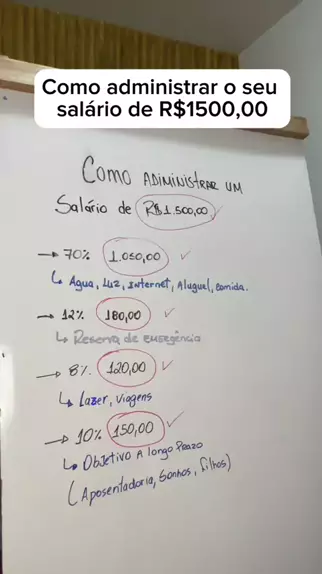 Como administrar o seu
salário de R$1500,00
COMO ADIMINISTRAR UM
Salário de R$1.500,00
→ 70% 1.050,00 ✓
↳ Agua, Luz, Internet, Aluguel, comida.
→ 12% 180,00 ✓
↳ Reserva de emergência
→ 8% 120,00 ✓
↳ Lazer, viagens
→ 10% 150,00 ✓
↳ Objetivo A longo Prazo
(Aposentadoria, Sonhos, filhos)